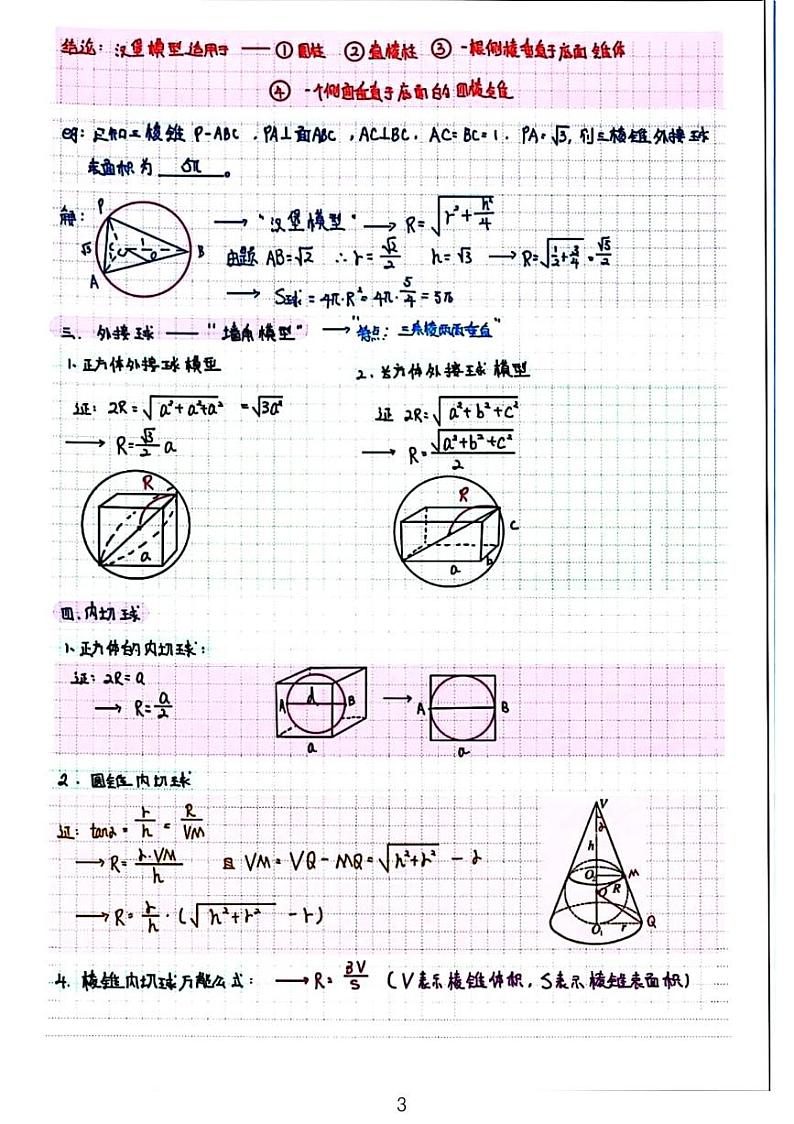 结论: 汉堡模型适用于 —— ①圆柱 ②直棱柱 ③一根侧棱垂直于底面锥体
④ 一个侧面垂直于底面的四棱锥
eg: 已知三棱锥 P-ABC , PA⊥面ABC , AC⊥BC. AC=BC=1. PA=√3, 则三棱锥外接球
表面积为 5π 。
解: → "汉堡模型" → R=√(r²+h²/4)
P √3 A C 1 O B
由题 AB=√2 ∴ r=√2/2 h=√3 → R=√(1/2+3/4)=√5/2
→ S球=4π·R²=4π·5/4=5π
三. 外接球 —— "墙角模型" → "特点: 三条棱两两垂直"
1. 正方体外接球模型
2. 长方体外接球模型
证: 2R=√(a²+a²+a²) =√3a²
证 2R=√(a²+b²+c²)
→ R=√3/2 a
→ R=√(a²+b²+c²)/2
R a
R a b c
四. 内切球
1. 正方体的内切球:
证: 2R=a
→ R=a/2
A d B a → A B a
2. 圆锥内切球
证: tanα=r/h=R/VM
→ R=r·VM/h 且 VM=VQ-MQ=√(h²+r²) - r
→ R=r/h·(√(h²+r²) - r)
V α h O₂ M O R O₁ r Q
4. 棱锥内切球万能公式: → R=3V/S (V表示棱锥体积, S表示棱锥表面积)
3